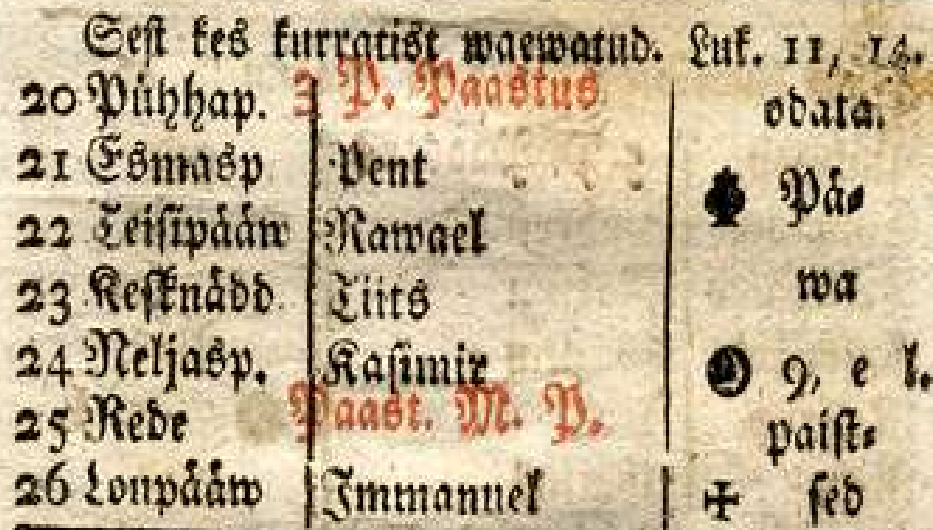 Sest kes kurratist waewatud. Luk. 11, 14.
20 Pühhap. 3 P. Paastus odata.
21 Esmasp Bent Pä-
22 Teisipääw Rawael
23 Kesknädd Tiits wa
24 Neljasp. Kasimir 9, e l.
25 Rede Paast. M. P. paist-
26 Loupääw Immanuel sed